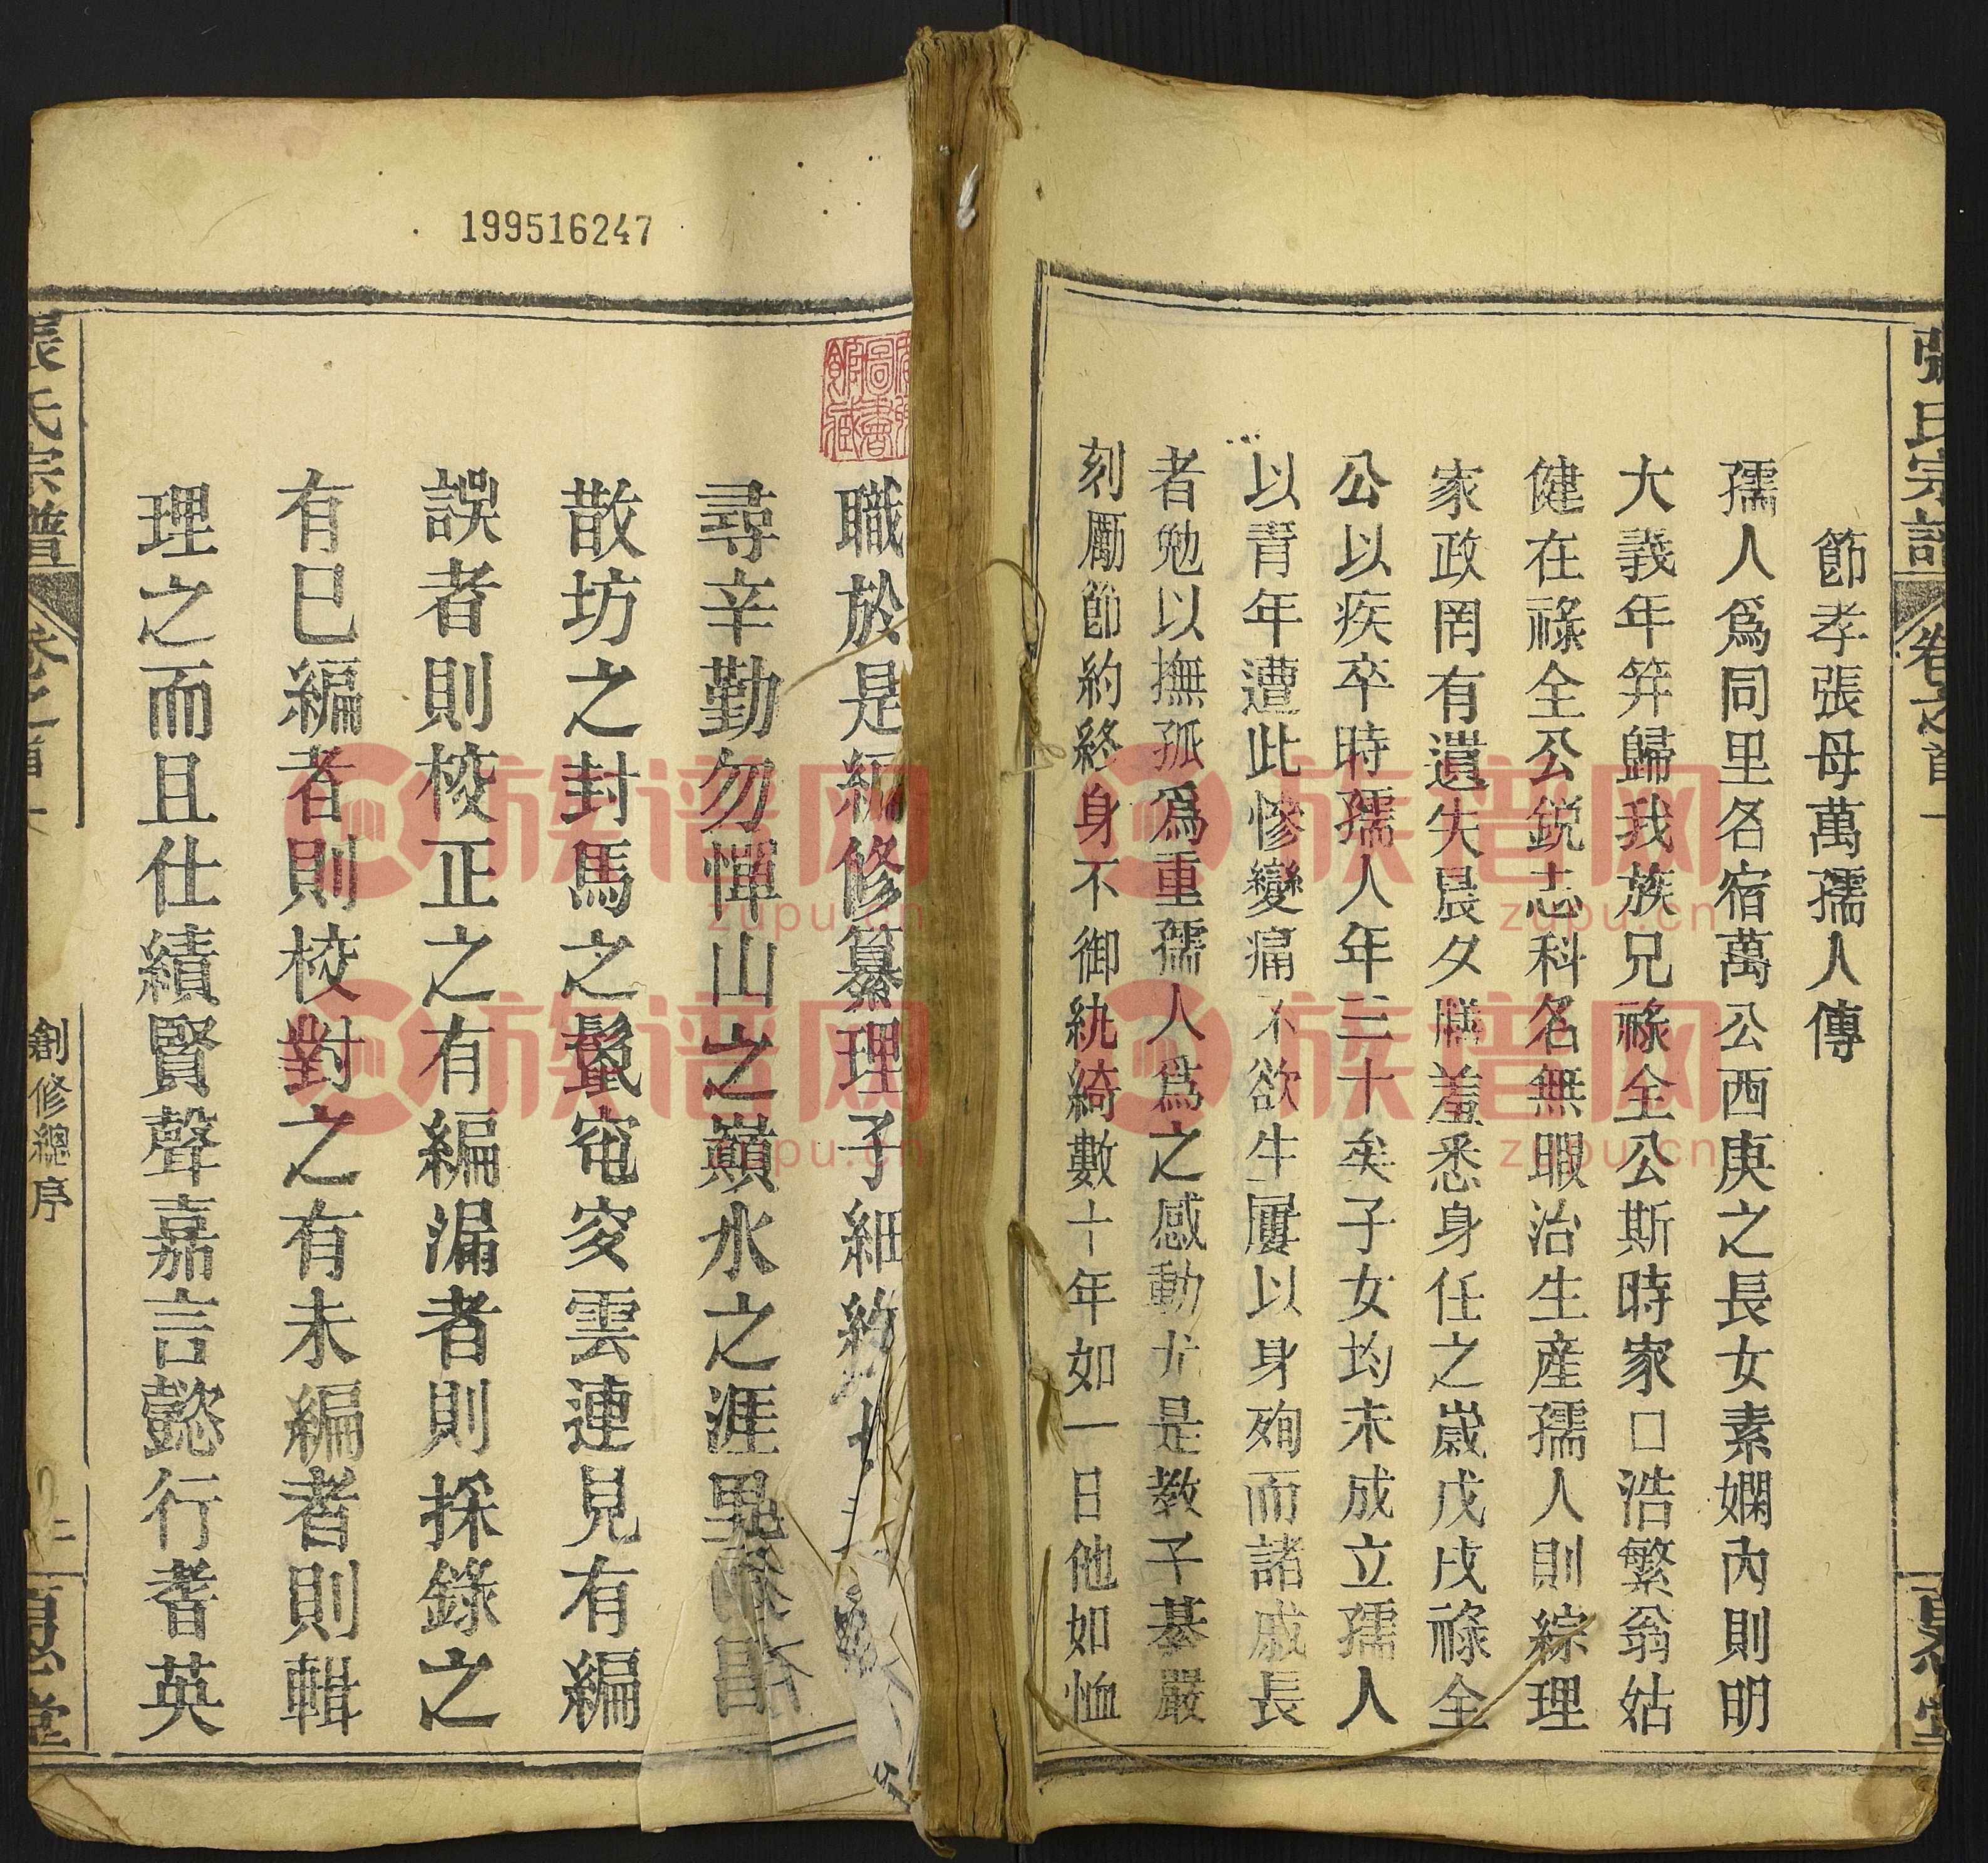 張氏宗譜
卷之首
節孝張母萬孺人傳
孺人為同里名宿萬公西庚之長女素嫻內則明
大義年笄歸我族兄祿全公斯時家口浩繁翁姑
健在祿全公銳志科名無暇治生產孺人則綜理
家政罔有遺失晨夕膳羞悉身任之歲戊戌祿全
公以疾卒時孺人年三十矣子女均未成立孺人
以青年遭此慘變痛不欲生屢以身殉而諸戚長
者勉以撫孤為重孺人為之感動于是教子綦嚴
刻厲節約終身不御紈綺數十年如一日他如恤
199516247
圖書
館藏
職於是編修纂理子細
尋辛勤勿憚山之巔水之涯
散坊之封馬之鬛窀穸雲連見有編
誤者則校正之有編漏者則採錄之
有已編者則校對之有未編者則輯
理之而且仕績賢聲嘉言懿行耆英
張氏宗譜
卷之首
創修總序
二
堂
族谱网
zupu.cn
族谱网
zupu.cn
族谱网
zupu.cn
族谱网
zupu.cn